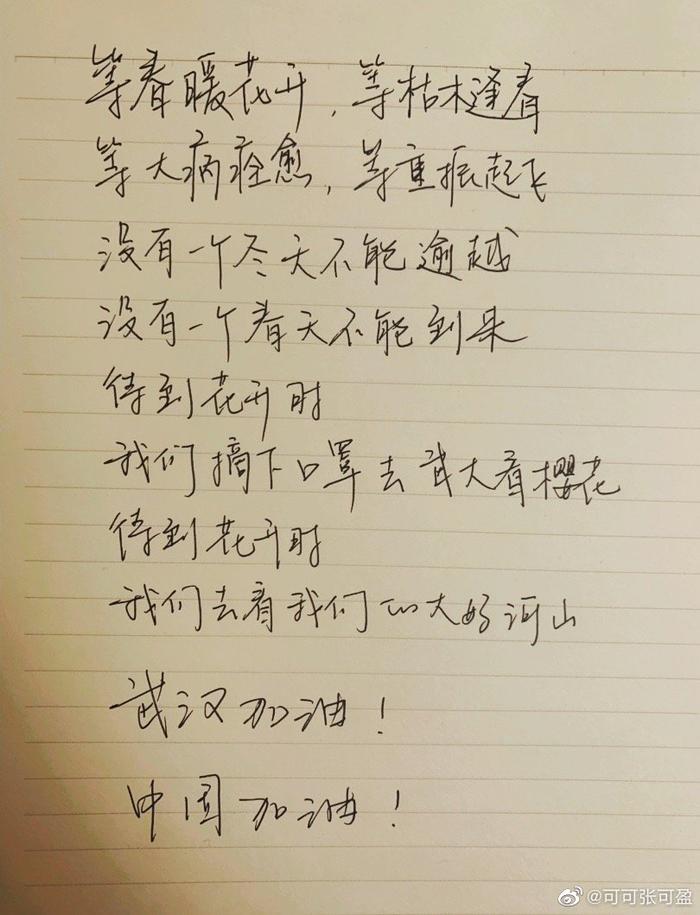 等春暖花开,等枯木逢春
等大病痊愈,等重振起飞
没有一个冬天不能逾越
没有一个春天不能到来
待到花开时
我们摘下口罩去武大看樱花
待到花开时
我们去看我们的大好河山
武汉加油!
中国加油!
@可可张可盈